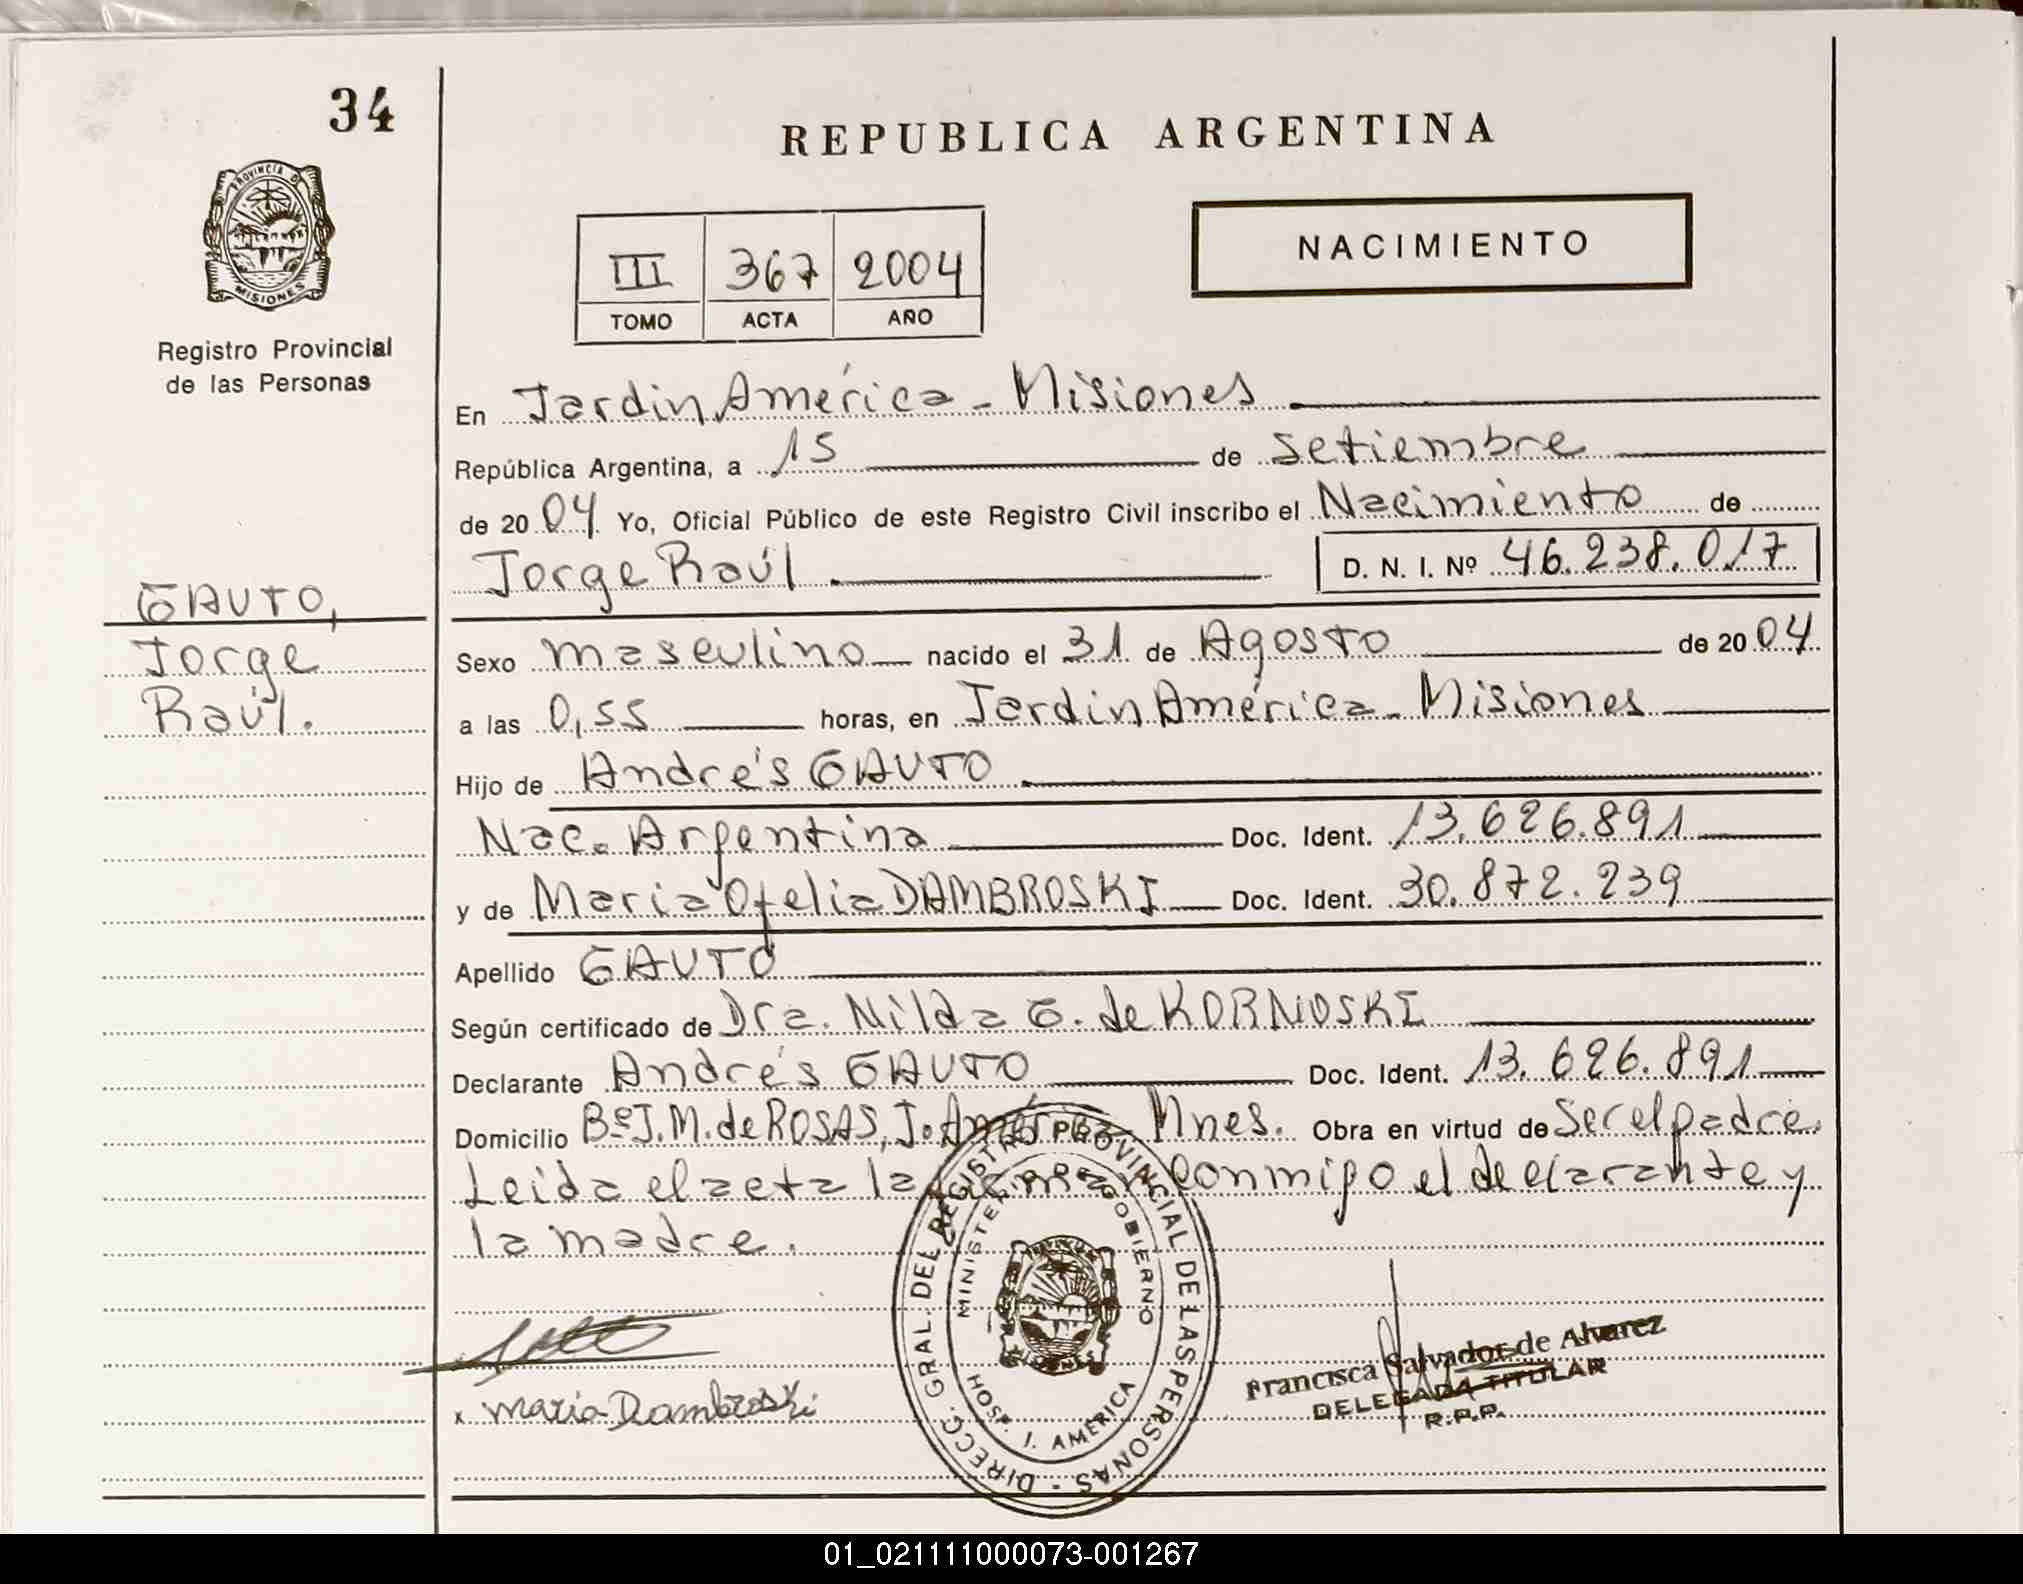 34
REPUBLICA ARGENTINA
PROVINCIA DE
MISIONES
Registro Provincial
de las Personas
III 367 2004
TOMO ACTA AÑO
NACIMIENTO
En Jardin América - Misiones
República Argentina, a 15 de setiembre
de 2004 Yo, Oficial Público de este Registro Civil inscribo el Nacimiento de
Jorge Raúl D. N. I. Nº 46.238.017
GAUTO,
Jorge
Raúl.
Sexo masculino nacido el 31 de Agosto de 2004
a las 0,55 horas, en Jardin América - Misiones
Hijo de Andrés GAUTO
Nac. Argentina Doc. Ident. 13.626.891
y de Maria Ofelia DAMBROSKI Doc. Ident. 30.872.239
Apellido GAUTO
Según certificado de Dra. Nilda G. de KORNOSKI
Declarante Andrés GAUTO Doc. Ident. 13.626.891
Domicilio Bº J. M. de ROSAS, J. América Mnes. Obra en virtud de Ser el padre.
Leida el acta la firman conmigo el declarante y
la madre.
DIRECC. GRAL. DEL REGISTRO PROVINCIAL DE LAS PERSONAS -
MINISTERIO DE GOBIERNO
HOSP. J. AMERICA
x Maria Dambroski
Francisca Salvador de Alvarez
DELEGADA TITULAR
R.P.P.
01_021111000073-001267